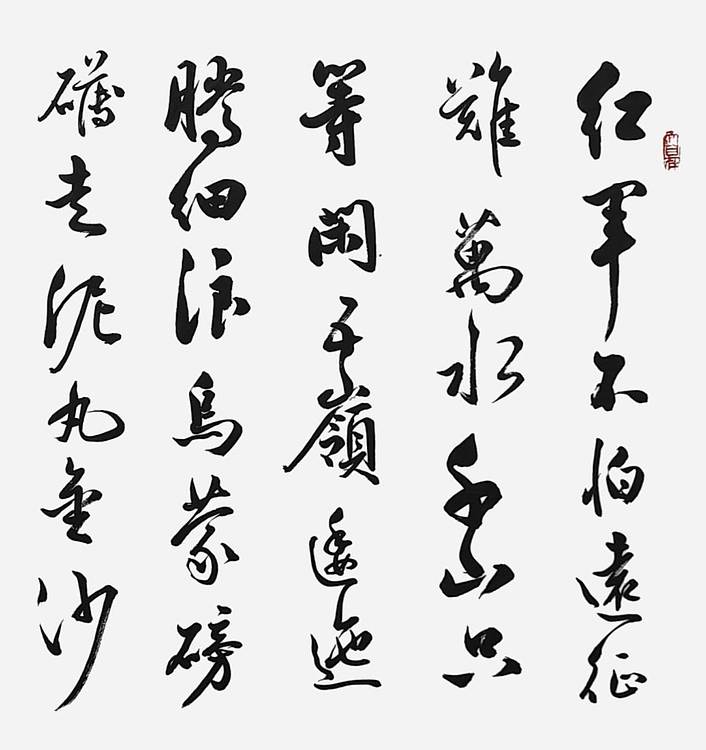 紅軍不怕遠征
難萬水千山只
等閑五嶺逶迤
騰細浪烏蒙磅
礴走泥丸金沙